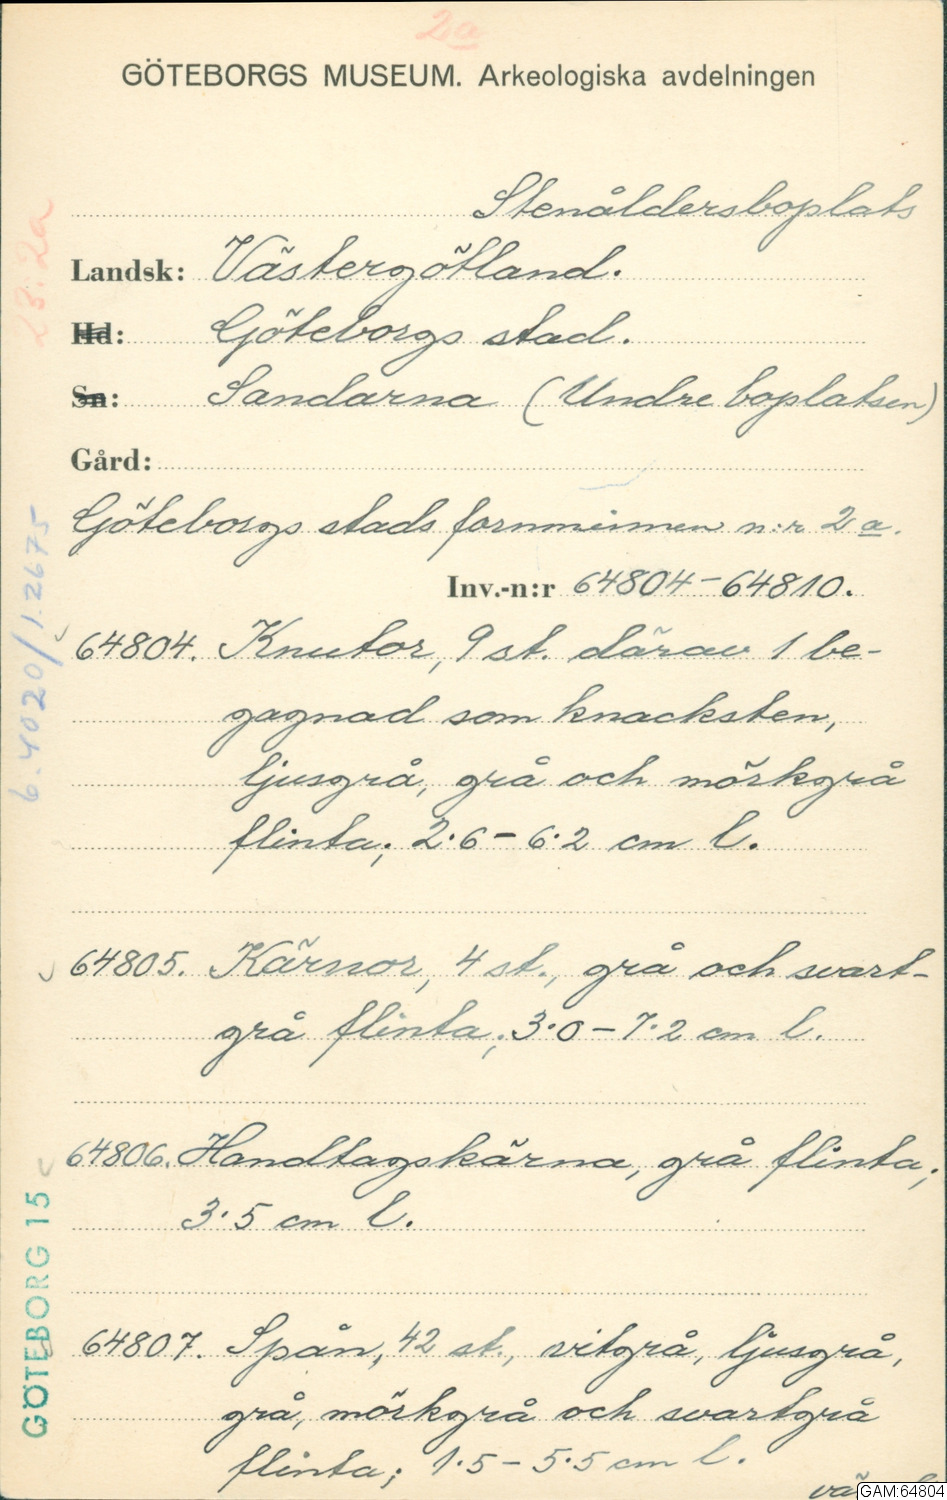 2a
GÖTEBORGS MUSEUM. Arkeologiska avdelningen
Stenåldersboplats
Landsk: Västergötland.
Hd: Göteborgs stad.
Sn: Sandarna (Undre boplatsen)
Gård:
Göteborgs stads fornminnen n:r 2a.
Inv.-n:r 64804-64810.
64804. Knutor, 9 st. därav 1 be-
gagnad som knacksten,
ljusgrå, grå och mörkgrå
flinta; 2·6-6·2 cm l.
64805. Kärnor, 4 st., grå och svart-
grå flinta; 3·0-7·2 cm l.
64806. Handtagskärna, grå flinta;
3·5 cm l.
64807. Spån, 42 st., vitgrå, ljusgrå,
grå, mörkgrå och svartgrå
flinta; 1·5-5·5 cm l.
GAM:64804
28:2a
6.4020/1.2675
GÖTEBORG 15